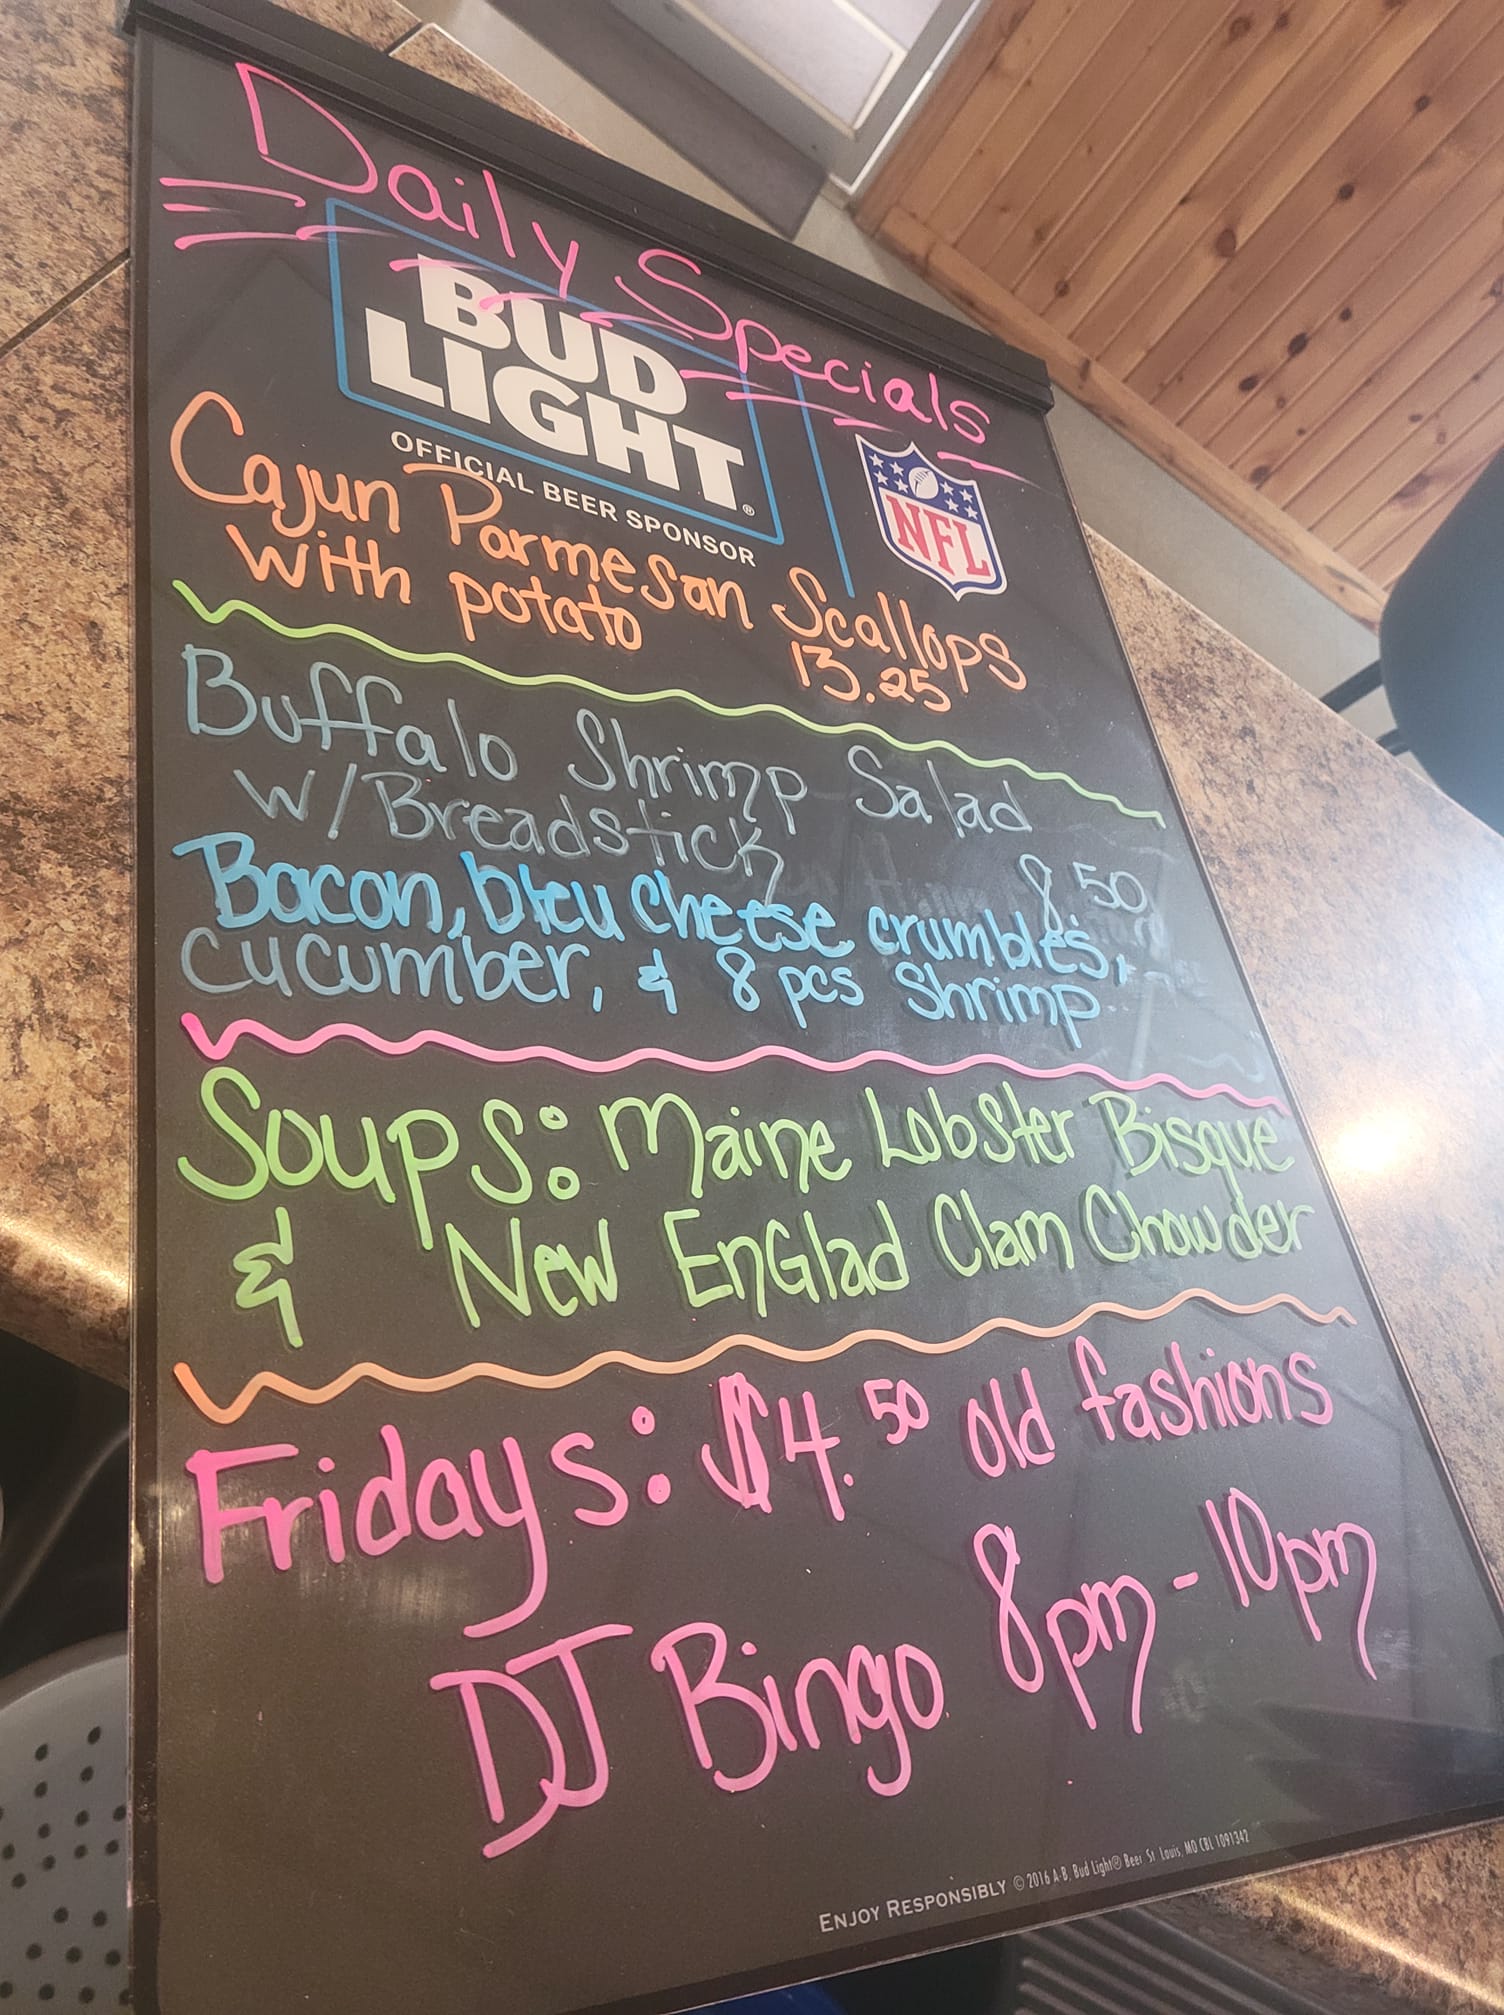 Daily Specials
BUD
LIGHT®
OFFICIAL BEER SPONSOR
NFL
Cajun Parmesan Scallops
with potato 13.25
Buffalo Shrimp Salad
w/Breadstick 8.50
Bacon, bleu cheese crumbles,
cucumber, & 8 pcs shrimp
Soups: Maine Lobster Bisque
& New EnGlad Clam Chowder
Fridays: $4.50 old fashions
DJ Bingo 8pm - 10pm
ENJOY RESPONSIBLY © 2016 A-B, Bud Light® Beer, St. Louis, MO CBL 1091342